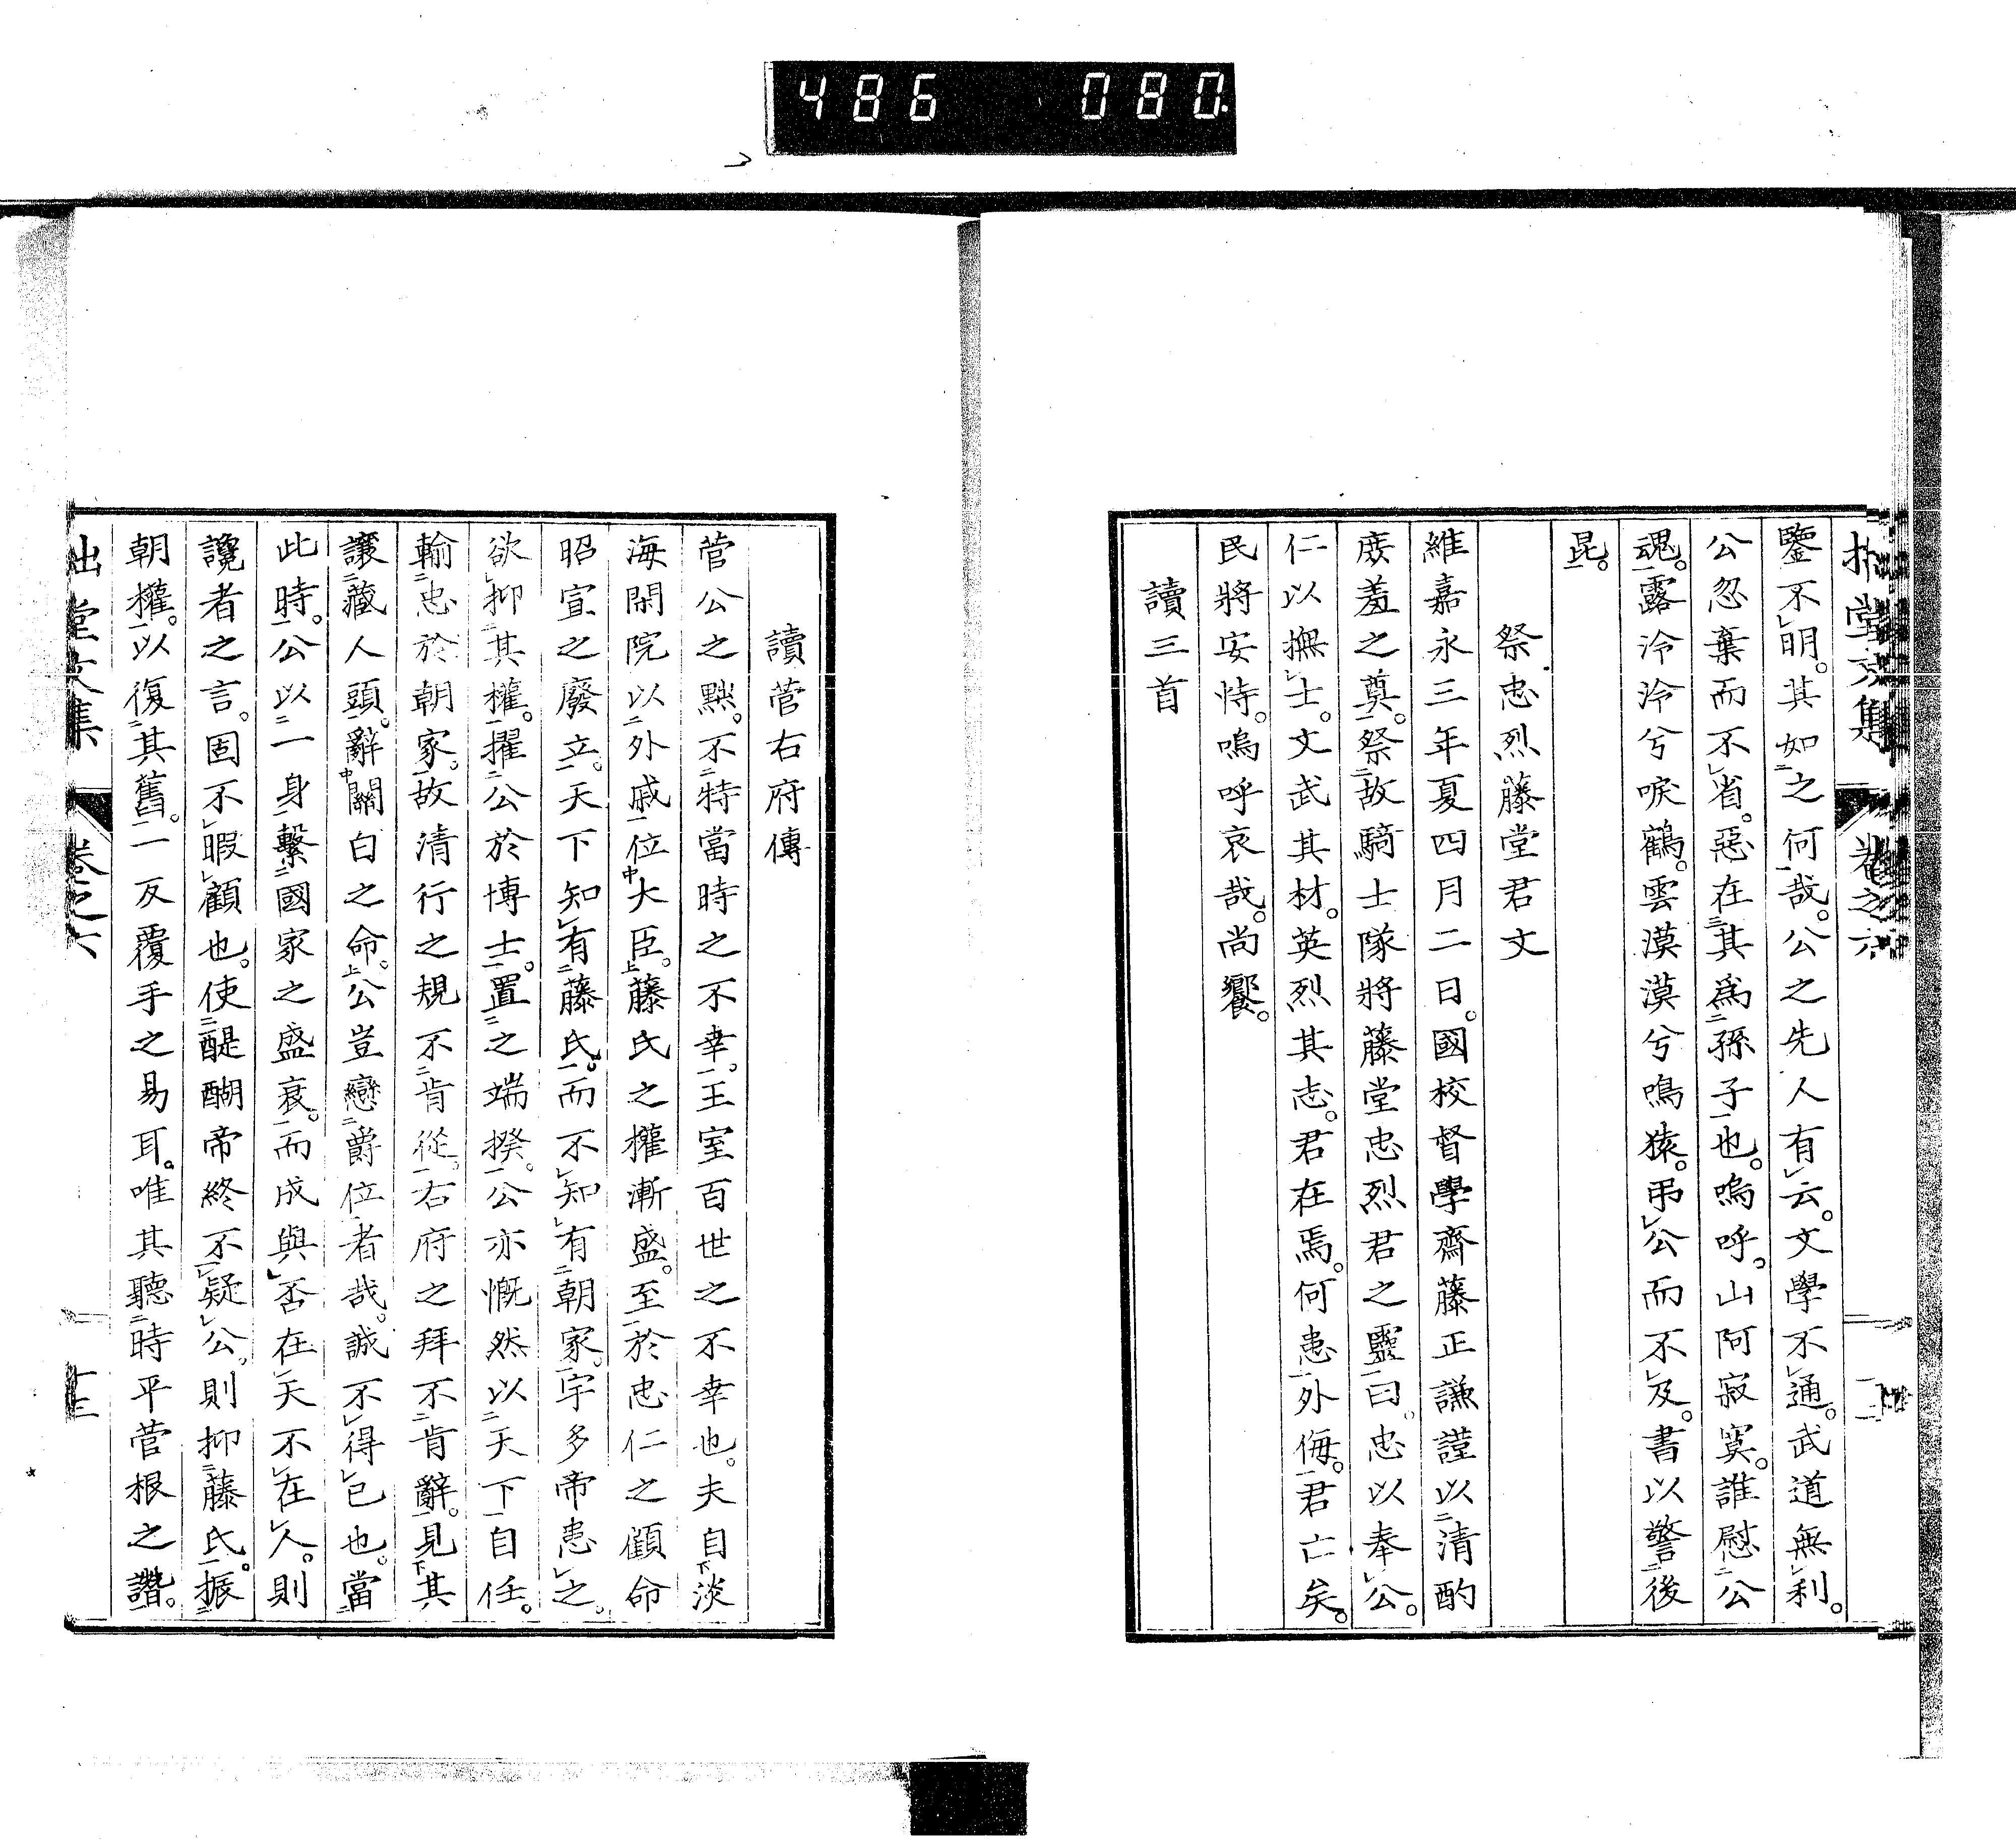 486 080
拙堂文集 卷之六
鑒不明。其如之何哉。公之先人有云。文學不通。武道無利。
公忽棄而不省。惡在其爲孫子也。嗚呼。山阿寂寞。誰慰公
魂。露泠泠兮唳鶴。雲漠漠兮鳴猿。弔公而不及。書以警後
昆。
祭忠烈藤堂君文
維嘉永三年夏四月二日。國校督學齋藤正謙謹以清酌
庶羞之奠。祭故騎士隊將藤堂忠烈君之靈曰。忠以奉公。
仁以撫士。文武其材。英烈其志。君在焉。何患外侮。君亡矣。
民將安恃。嗚呼哀哉。尚饗。
讀三首
讀菅右府傳
菅公之黜。不特當時之不幸。王室百世之不幸也。夫自淡
海閑院以外戚位大臣。藤氏之權漸盛。至於忠仁之顧命
昭宣之廢立。天下知有藤氏。而不知有朝家。宇多帝患之。
欲抑其權。擢公於博士。置之端揆。公亦慨然以天下自任。
輸忠於朝家。故清行之規不肯從。右府之拜不肯辭。見其
讓藏人頭。辭關白之命。公豈戀爵位者哉。誠不得已也。當
此時。公以一身繫國家之盛衰。而成與否在天不在人。則
讒者之言。固不暇顧也。使醍醐帝終不疑公。則抑藤氏。振
朝權。以復其舊。一反覆手之易耳。唯其聽時平菅根之譖。
拙堂文集 卷之六